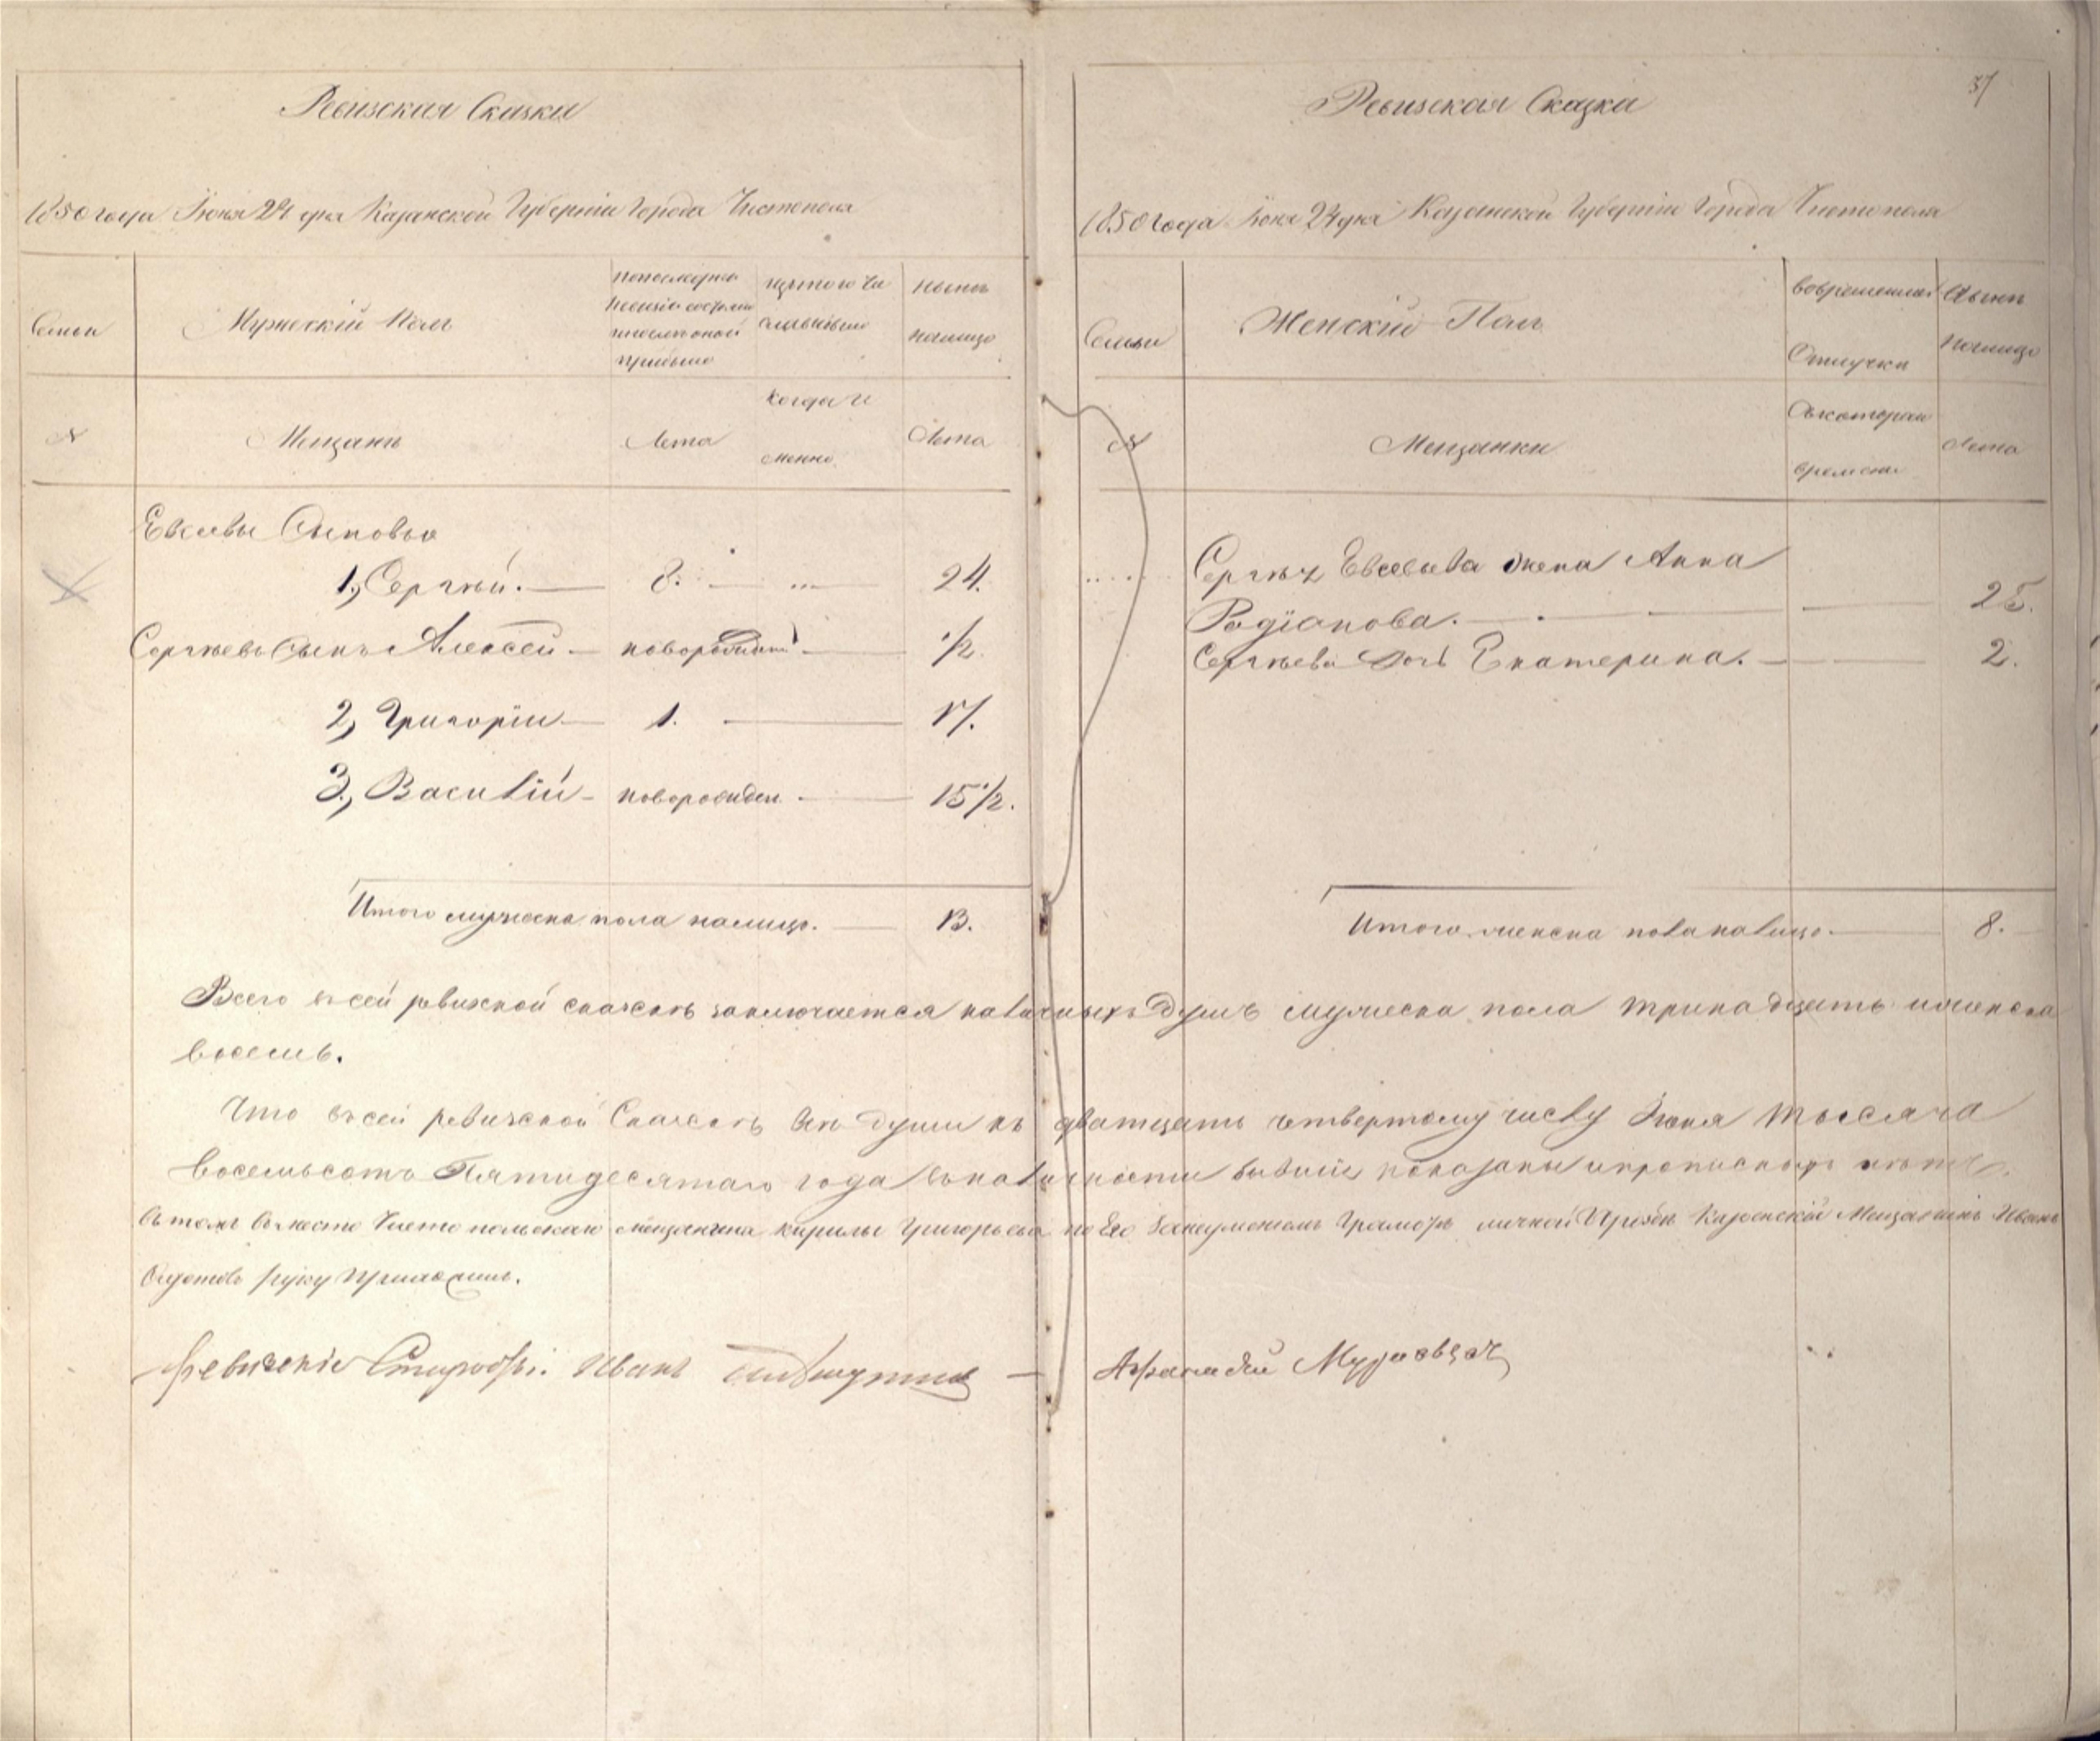 Ревизская Сказка
1850 года Іюня 24 дня Казанской Губерніи Города Чистополя
Семьи
Мужескій Полъ
По последней
ревизіи состояло
и после оной
прибыло
Изъ того чи
сла выбыло
Ныне
налицо
№
Мещанъ
Лета
Когда и
менно
Лета
Евсевы Сыновья
1, Сергѣй. — 8. — 24.
Сергѣева Сынъ Алексей — новорожден — 1/2.
2, Григорій — 1. — 17.
3, Василій — новорожден. — 15 1/2.
Итого мужеска пола налицо. — 13.
37
Ревизская Сказка
1850 года Іюня 24 дня Казанской Губерніи Города Чистополя
Семьи
Женскій Полъ
Во временной
Отлучки
Ныне
налицо
№
Мещанки
Съ котораго
времени
Лета
Сергѣя Евсеева жена Анна
Родіонова. — 25.
Сергѣева Дочь Екатерина. — 2.
Итого женска пола налицо. — 8.
Всего въ сей ревизской сказкѣ заключается наличныхъ Душъ мужеска пола тринадцать и женска
восемь.
Что въ сей ревизской Сказкѣ все души къ дватцать четвертому числу Іюня тысяча
восемьсотъ Пятидесятаго года въ наличности бывшіе показаны и прописныхъ нѣтъ.
Въ томъ вместо Чистопольскаго мещанина Кирилы Григорьева по Его неуменіемъ Грамоте личной Прозьбе Казанскій Мещанинъ Иванъ
руку Приложилъ.
Иванъ